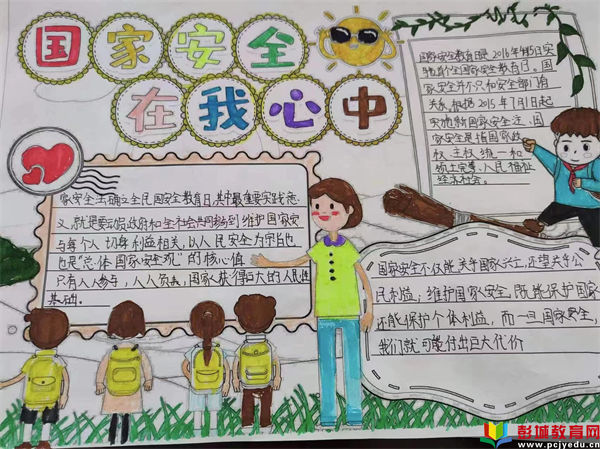 国家安全
在我心中
国家安全教育日是2016年4月15日实
国家安全教育日。国
家安全并不只和安全部门有
关系,根据2015年7月1日起
实施新国家安全法、国
家安全是指国家政
权、主权、统一和
领土完整、人民福祉
经济社会。
家安全法确立全民国安全教育日,其中最重要实践意
义,就是要动员政府和全社会共同参与到维护国家安
与每个人切身利益相关,以人民安全为宗旨也
也是“总体国家安全观”的核心价值
只有人人参与,人人负责,国家获得巨大的人民性
基础。
国家安全不仅能关乎国家兴亡,还望关乎公
民利益;维护国家安全,既能保护国家
还能保护个体利益,而一旦国家安全,
我们就可能付出巨大代价
彭城教育网
www.pcjyedu.cn